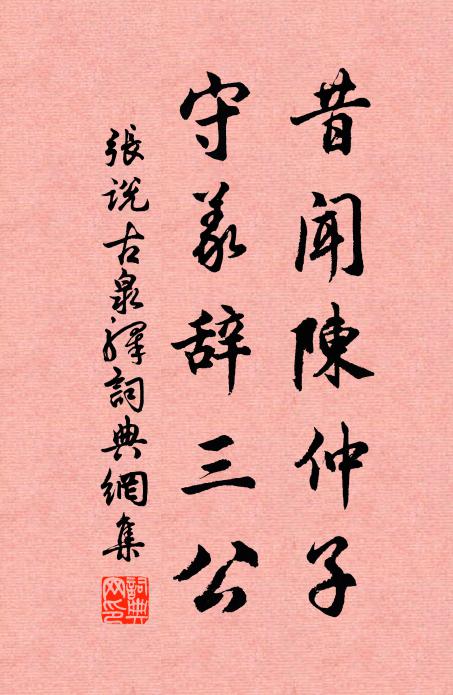 昔聞陳仲子
守義辞三公
張说古泉驛詞典網集
詞典网印